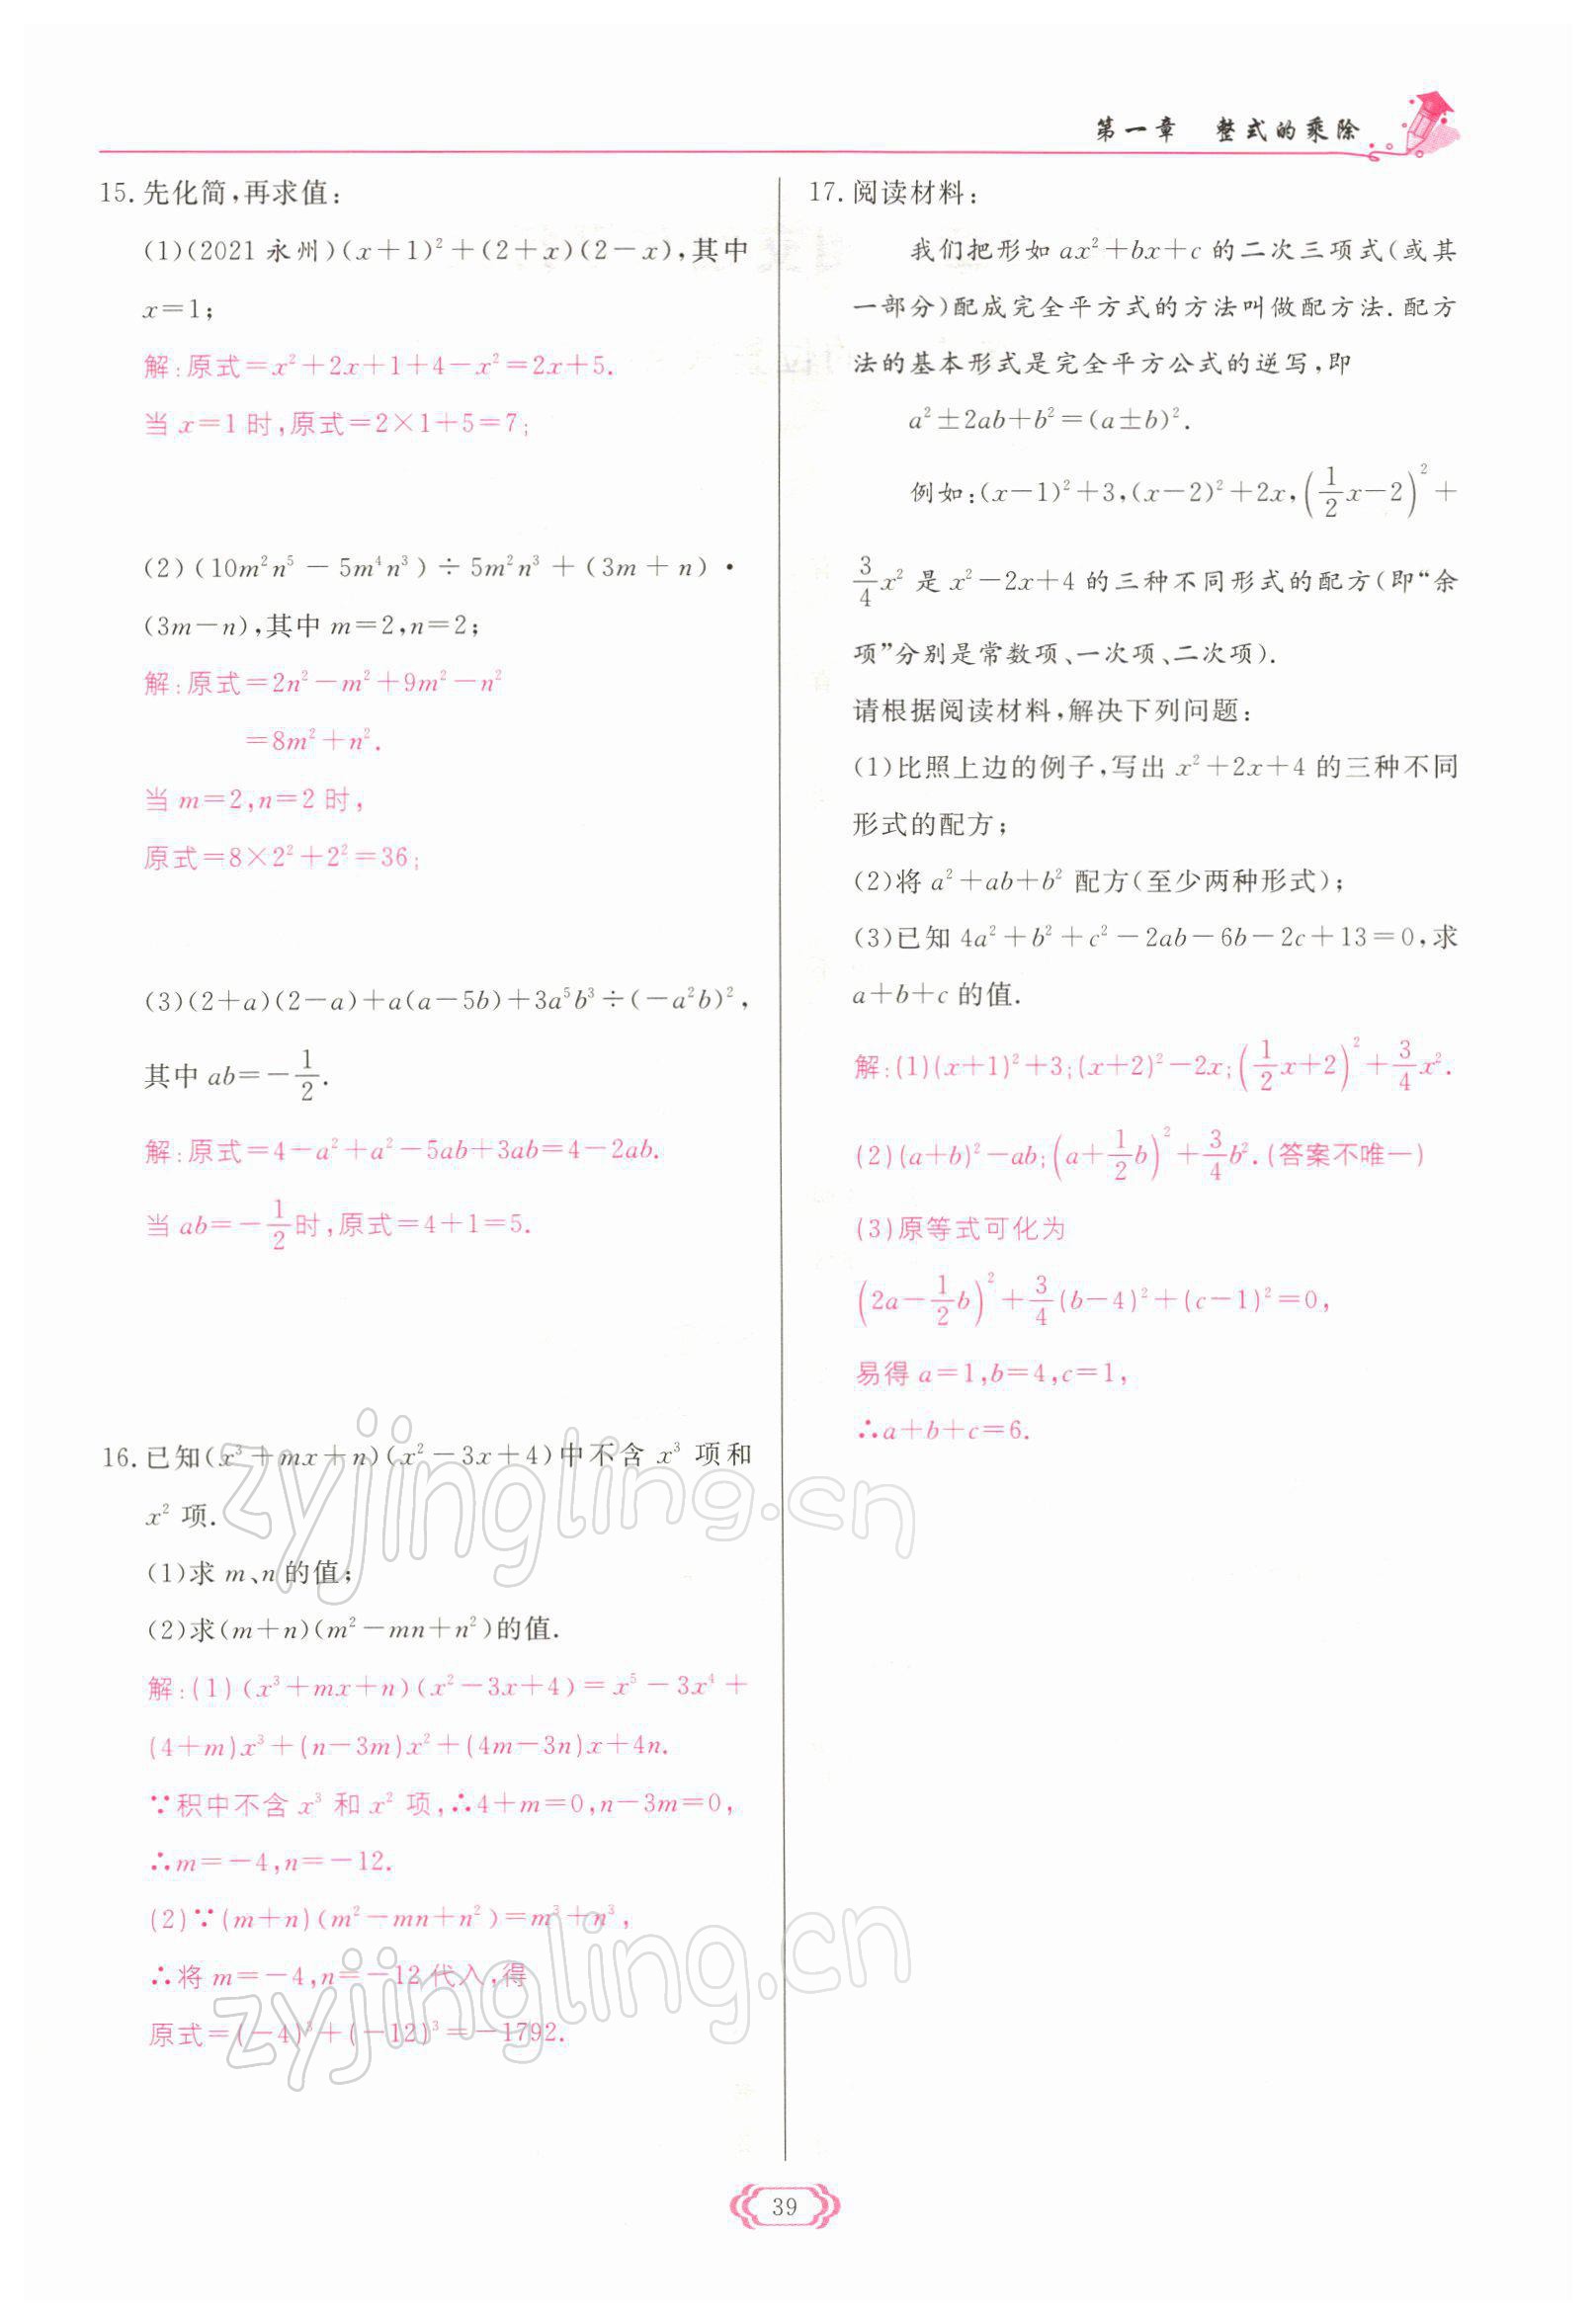 第一章 整式的乘除
15. 先化简,再求值:
(1)(2021 永州)(x+1)²+(2+x)(2-x),其中
x=1;
解:原式=x²+2x+1+4-x²=2x+5.
当 x=1 时,原式=2×1+5=7;
(2)(10m²n⁵-5m⁴n³)÷5m²n³+(3m+n)·
(3m-n),其中 m=2,n=2;
解:原式=2n²-m²+9m²-n²
=8m²+n².
当 m=2,n=2 时,
原式=8×2²+2²=36;
(3)(2+a)(2-a)+a(a-5b)+3a⁵b³÷(-a²b)²,
其中 ab=-1/2.
解:原式=4-a²+a²-5ab+3ab=4-2ab.
当 ab=-1/2时,原式=4+1=5.
16. 已知(x³+mx+n)(x²-3x+4)中不含 x³ 项和
x² 项.
(1)求 m、n 的值;
(2)求(m+n)(m²-mn+n²)的值.
解:(1)(x³+mx+n)(x²-3x+4)=x⁵-3x⁴+
(4+m)x³+(n-3m)x²+(4m-3n)x+4n.
∵积中不含 x³ 和 x² 项,∴4+m=0,n-3m=0,
∴m=-4,n=-12.
(2)∵(m+n)(m²-mn+n²)=m³+n³,
∴将 m=-4,n=-12 代入,得
原式=(-4)³+(-12)³=-1792.
17. 阅读材料:
我们把形如 ax²+bx+c 的二次三项式(或其
一部分)配成完全平方式的方法叫做配方法.配方
法的基本形式是完全平方公式的逆写,即
a²±2ab+b²=(a±b)².
例如:(x-1)²+3,(x-2)²+2x,(1/2x-2)²+
3/4x² 是 x²-2x+4 的三种不同形式的配方(即“余
项”分别是常数项、一次项、二次项).
请根据阅读材料,解决下列问题:
(1)比照上边的例子,写出 x²+2x+4 的三种不同
形式的配方;
(2)将 a²+ab+b² 配方(至少两种形式);
(3)已知 4a²+b²+c²-2ab-6b-2c+13=0,求
a+b+c 的值.
解:(1)(x+1)²+3;(x+2)²-2x;(1/2x+2)²+3/4x².
(2)(a+b)²-ab;(a+1/2b)²+3/4b².(答案不唯一)
(3)原等式可化为
(2a-1/2b)²+3/4(b-4)²+(c-1)²=0,
易得 a=1,b=4,c=1,
∴a+b+c=6.
zyjingling.cn
zyjingling.cn
39